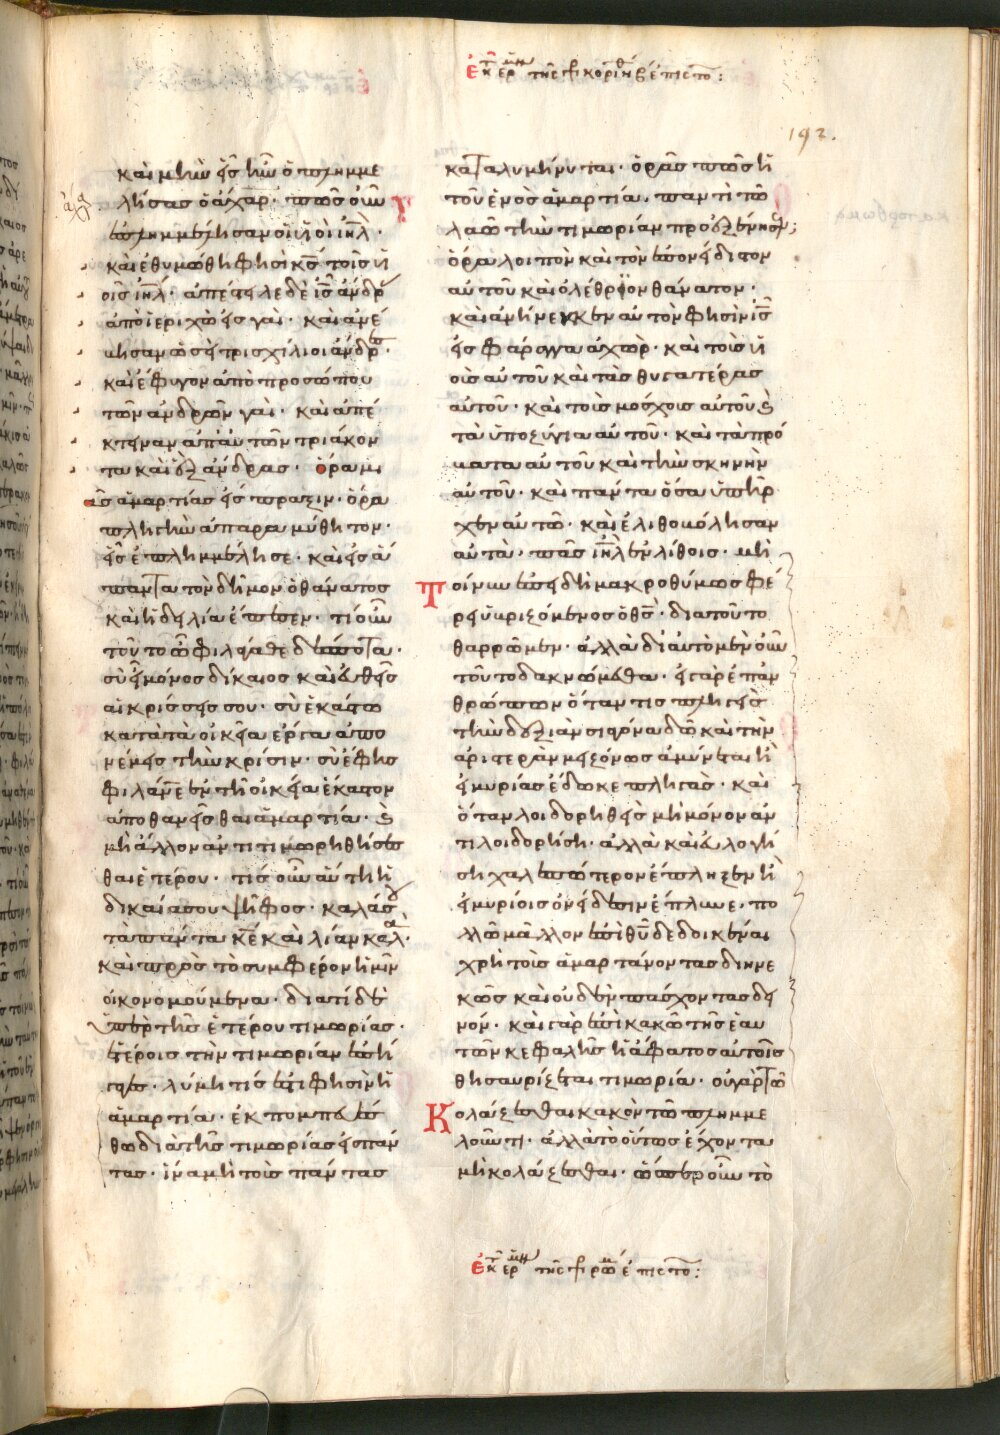 ἐκ τῆς ἑρμην τῆς πρ κορινθ β ἐπιστο:
192.
καὶ μὴν εἷς ἦν ὁ πλημμε
λήσας ὁ ἄχαρ· πῶς οὖν
ἐπλημμέλησαν οἱ υἱοὶ ἰηλ·
καὶ ἐθυμώθη φησὶ κς τοῖς υἱ
οῖς ἰηλ· ἀπέστειλε δὲ ις ἄνδρ
ἀπὸ ἱεριχὼ εἰς γαὶ· καὶ ἀνέ
βησαν ὡσεὶ τρισχίλιοι ἄνδρες·
καὶ ἔφυγον ἀπὸ προσώπου
τῶν ἀνδρῶν γαὶ· καὶ ἀπέ
κτειναν ἀπ' αὐτῶν τριάκον
τα καὶ ἓξ ἄνδρας· ὅρα μι
ᾶς ἁμαρτίας εἰς πρᾶξιν· ὅρα
πληγὴν ἀπαραμύθητον·
εἷς ἐπλημμέλησε· καὶ εἰς ἅ
παντα τὸν δῆμον ὁ θάνατος
καὶ ἡ δειλία ἔπεσεν· τί οὖν
τοῦτο ὦ φιλάνε δέσποτα·
σὺ εἶ μόνος δίκαιος καὶ εὐθεῖς
αἱ κρίσεις σου· σὺ ἑκάστω
κατὰ τὰ οἰκεῖα ἔργα ἀπο
νέμεις τὴν κρίσιν· σὺ ἔφης
φιλάνε ἐν τῆ οἰκεία ἕκαστον
ἀποθανεῖσθαι ἁμαρτία· καὶ
μὴ ἄλλον ἀντιτιμωρηθήσεσ
θαι ἑτέρου· τίς οὖν αὕτη ἡ
δικαία σου ψῆφος· καλά σου
τὰ πάντα κε καὶ λίαν καλ·
καὶ πρὸς τὸ συμφέρον ἡμῖν
οἰκονομούμενα· διατί δὲ
ὑπὲρ τῆς ἑτέρου τιμωρίας·
ἑτέροις τὴν τιμωρίαν ἐπή
γαγες· λύμη τίς ἐστι φησὶν ἡ
ἁμαρτία· ἐκπομπευέσ
θω διὰ τῆς τιμωρίας εἰς πάν
τας· ἵνα μὴ τοὺς πάντας
καταλυμήνηται· ὁρᾶς πῶς ἡ
τοῦ ἑνὸς ἁμαρτία· παντὶ τῶ
λαῶ τὴν τιμωρίαν προὐξένησεν;
ὅρα λοιπὸν καὶ τὸν ἐπονείδιστον
αὐτοῦ καὶ ὀλέθριον θάνατον·
καὶ ἀνήνεγκεν αὐτὸν φησὶν ις
εἰς φάραγγα ἀχώρ· καὶ τοὺς υἱ
οὺς αὐτοῦ καὶ τὰς θυγατέρας
αὐτοῦ· καὶ τοὺς μόσχους αὐτοῦ καὶ
τὰ ὑποζύγια αὐτοῦ· καὶ τὰ πρό
βατα αὐτοῦ καὶ τὴν σκηνὴν
αὐτοῦ· καὶ πάντα ὅσα ὑπῆρ
χεν αὐτῶ· καὶ ἐλιθοβόλησαν
αὐτὰ· πᾶς ἰηλ ἐν λίθοις· μὴ
τοίνυν ἐπειδὴ μακροθύμως φέ
ρει ὑβριζόμενος ὁ θς· διὰ τοῦτο
θαρρῶμεν· ἀλλὰ δι' αὐτὸ μὲν οὖν
τοῦτο δακνώμεθα· εἰ γὰρ ἐπ' ἀν
θρώπων ὅταν τις πληγεὶς
τὴν δεξιὰν σιαγόνα δῶ καὶ τὴν
ἀριστερὰν μειζόνως ἀμύνεται ἢ
εἰ μυρίας ἔδωκε πληγὰς· καὶ
ὅταν λοιδορηθεὶς μὴ μόνον ἀν
τιλοιδορήση· ἀλλὰ καὶ εὐλογή
ση χαλεπώτερον ἔπληξεν ἢ
εἰ μυρίοις ὀνείδεσιν ἔπλυνε· πο
λλῶ μᾶλλον ἐπὶ θυ δεδοικέναι
χρὴ τοὺς ἁμαρτάνοντας διηνε
κῶς καὶ οὐδὲν πάσχοντας δει
νόν· καὶ γὰρ ἐπὶ κακῶ τῆς ἑαυ
τῶν κεφαλῆς ἡ ἄφατος αὐτοῖς
θησαυρίζεται τιμωρία· οὐ γὰρ τὸ
κολάζεσθαι κακὸν τῶ πλημμε
λοῦντι· ἀλλὰ τὸ οὕτως ἔχοντα
μὴ κολάζεσθαι· ὥσπερ οὖν τὸ
ἐκ τῆς ἑρμην τῆς πρ ρωμ ἐπιστο: